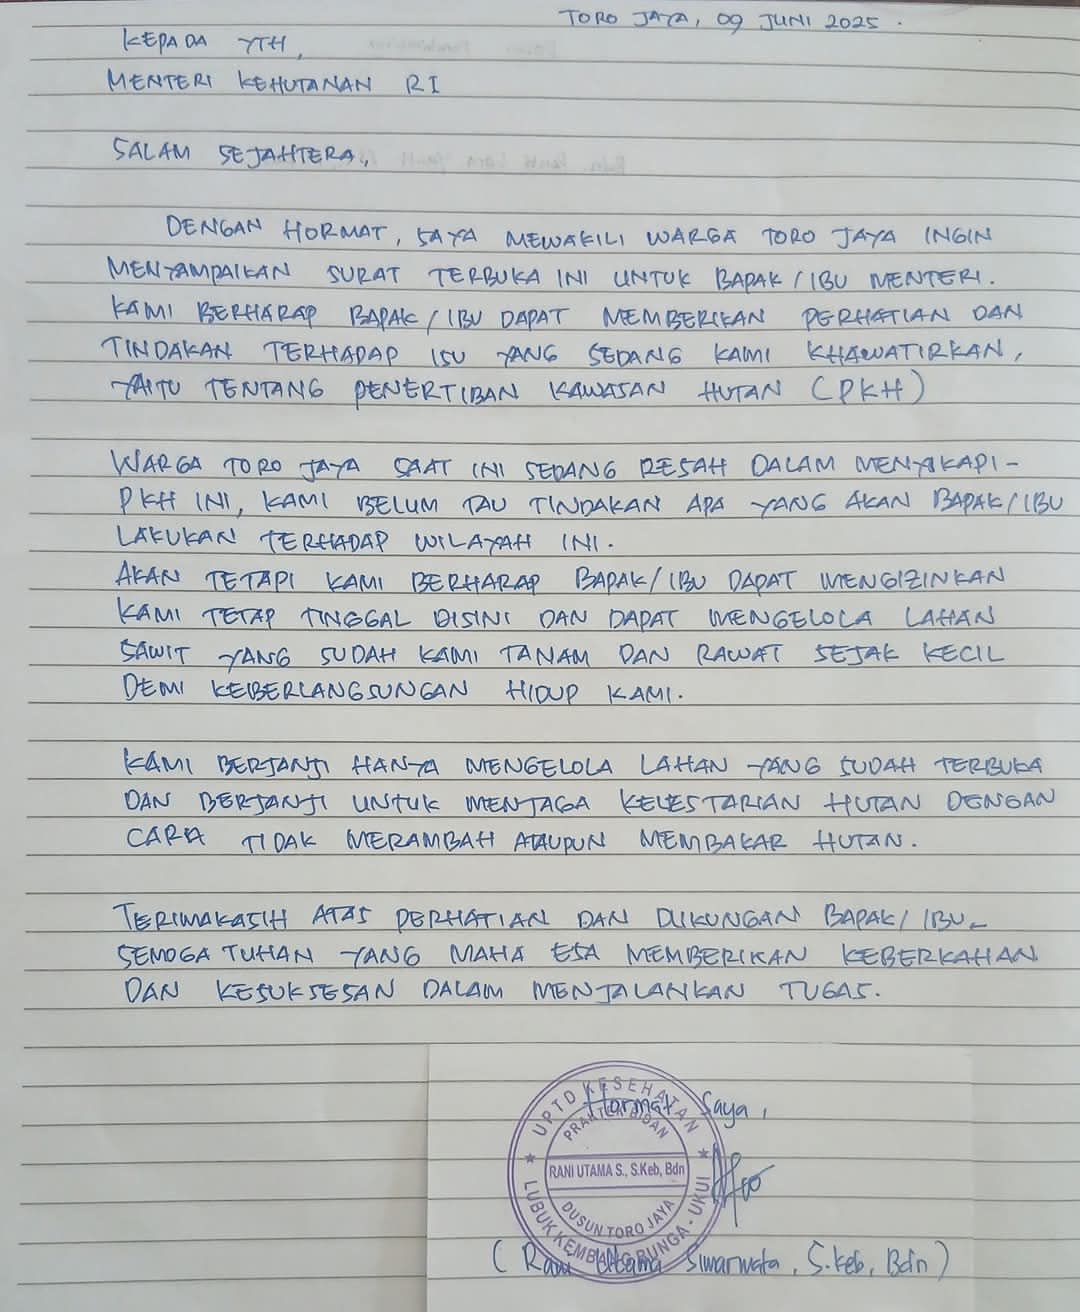 TORO JAYA, 09 JUNI 2025.
KEPADA YTH,
MENTERI KEHUTANAN RI
SALAM SEJAHTERA,
DENGAN HORMAT, SAYA MEWAKILI WARGA TORO JAYA INGIN
MENYAMPAIKAN SURAT TERBUKA INI UNTUK BAPAK/IBU MENTERI.
KAMI BERHARAP BAPAK/IBU DAPAT MEMBERIKAN PERHATIAN DAN
TINDAKAN TERHADAP ISU YANG SEDANG KAMI KHAWATIRKAN,
YAITU TENTANG PENERTIBAN KAWASAN HUTAN (PKH)
WARGA TORO JAYA SAAT INI SEDANG RESAH DALAM MENYIKAPI-
PKH INI, KAMI BELUM TAU TINDAKAN APA YANG AKAN BAPAK/IBU
LAKUKAN TERHADAP WILAYAH INI.
AKAN TETAPI KAMI BERHARAP BAPAK/IBU DAPAT MENGIZINKAN
KAMI TETAP TINGGAL DISINI DAN DAPAT MENGELOLA LAHAN
SAWIT YANG SUDAH KAMI TANAM DAN RAWAT SEJAK KECIL
DEMI KEBERLANGSUNGAN HIDUP KAMI.
KAMI BERJANJI HANYA MENGELOLA LAHAN YANG SUDAH TERBUKA
DAN BERJANJI UNTUK MENJAGA KELESTARIAN HUTAN DENGAN
CARA TIDAK MERAMBAH ATAUPUN MEMBAKAR HUTAN.
TERIMAKASIH ATAS PERHATIAN DAN DUKUNGAN BAPAK/IBU-
SEMOGA TUHAN YANG MAHA ESA MEMBERIKAN KEBERKAHAN
DAN KESUKSESAN DALAM MENJALANKAN TUGAS.
Hormat Saya,
UPTD KESEHATAN
PRAKTEK BIDAN
RANI UTAMA S., S.Keb, Bdn
DUSUN TORO JAYA
LUBUK KEMBANG BUNGA - UKUI
(Rani Utama Siwarwata, S.Keb, Bdn)